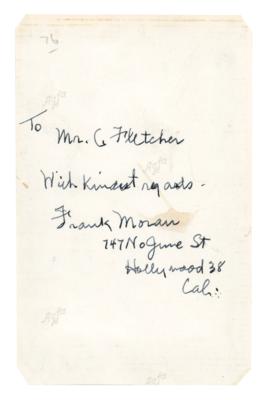 76
To
Mr. G Fletcher
With kindest regards -
Frank Moran
747 No June St
Hollywood 38
Cal.